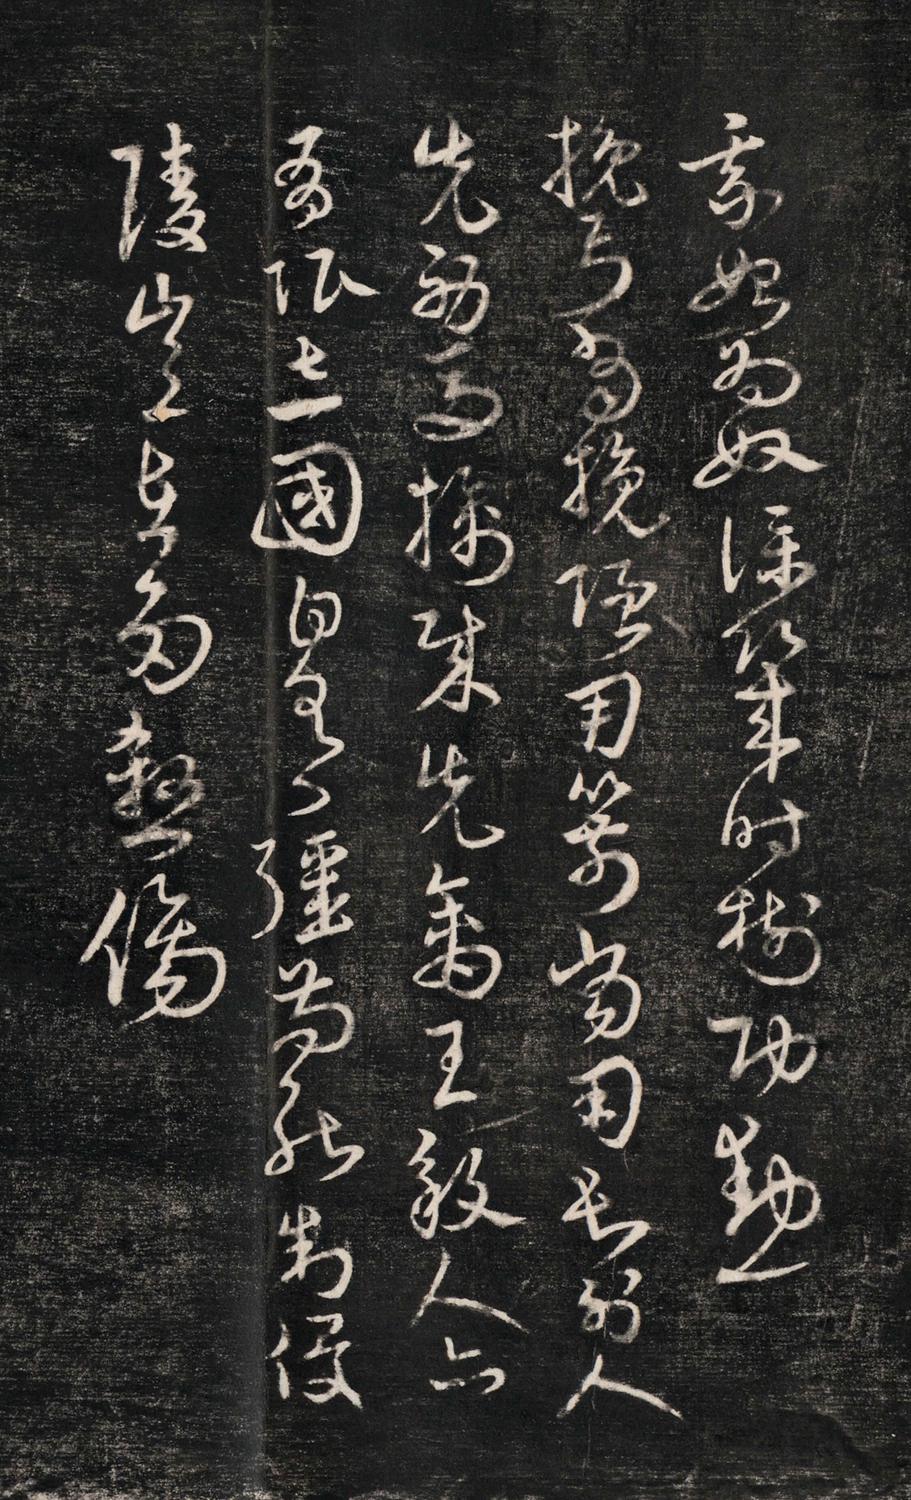 我始為奴僕幾時樹功勳
挽弓當挽強用箭當用長射人
先射馬擒賊先擒王殺人亦
有限立國自有疆苟能制侵
陵豈在多殺傷